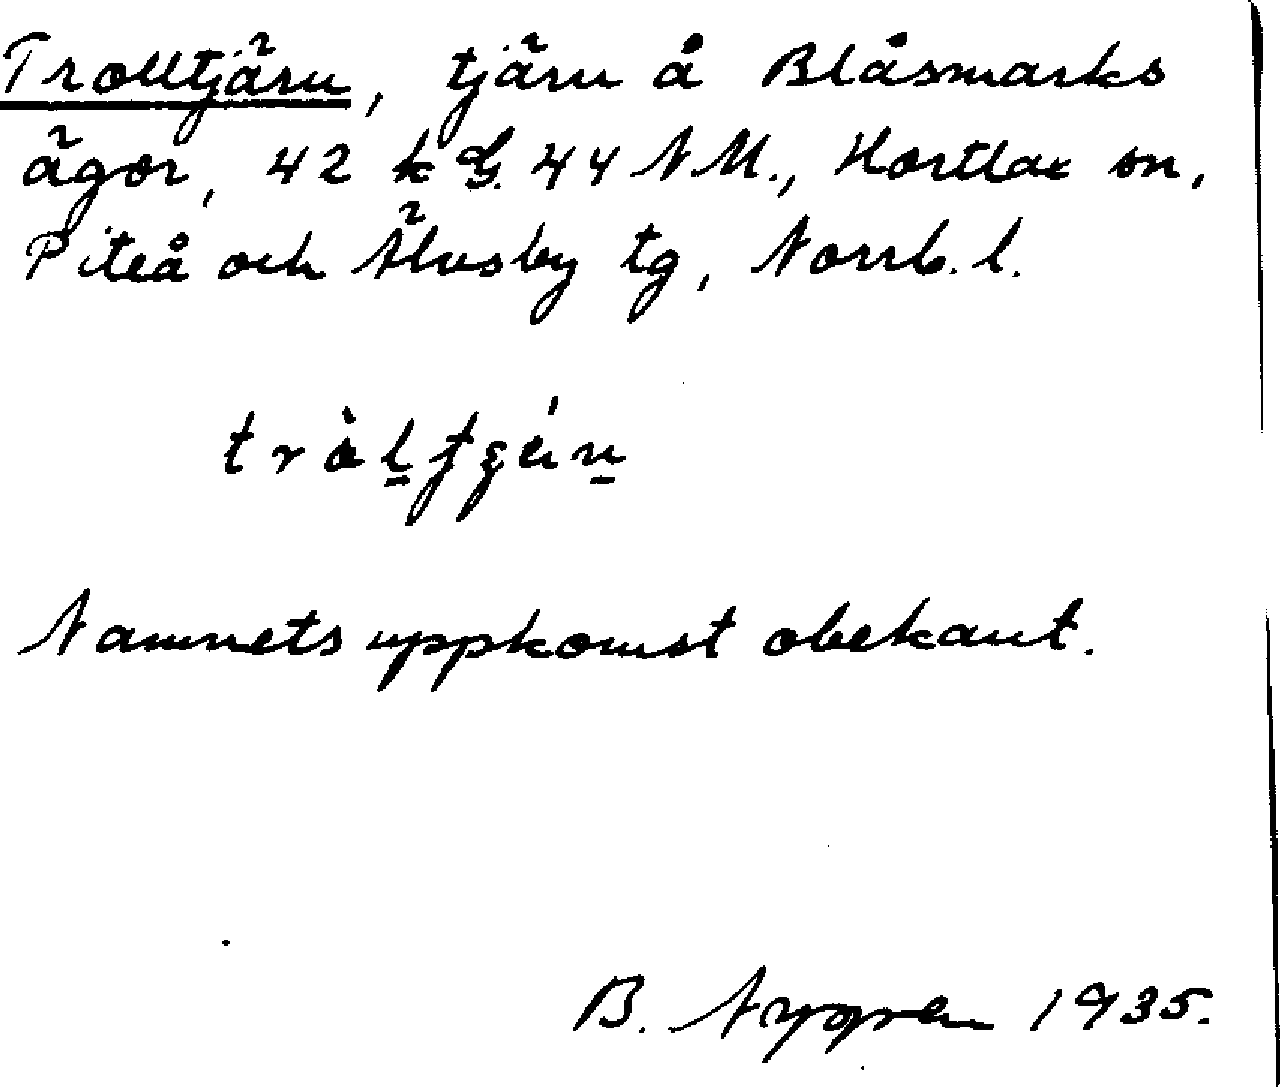 Trolltjärn, tjärn å Blåsmarks
ägor, 42 k G. 44 N M., Hortlax sn,
Piteå och Älvsby tg, Norrb. l.
Namnets uppkomst obekant.
B. Nygren 1935.